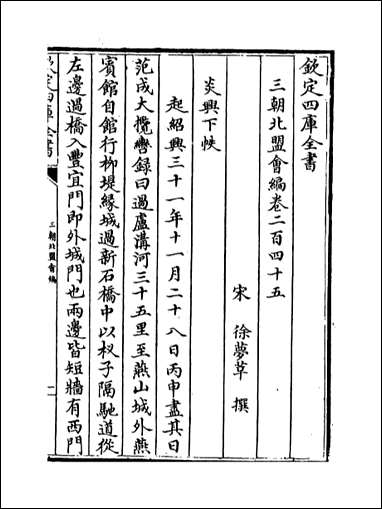 欽定四庫全書
三朝北盟會編卷二百四十五
宋　徐夢莘　撰
炎興下帙
起紹興三十一年十一月二十八日丙申盡其日
范成大攬轡録曰過盧溝河三十五里至燕山城外燕
賓館自館行柳堤緣城過新石橋中以杈子隔馳道從
左邊過橋入豐宜門即外城門也兩邊皆短牆有西門
欽定四庫全書
三朝北盟會編
一